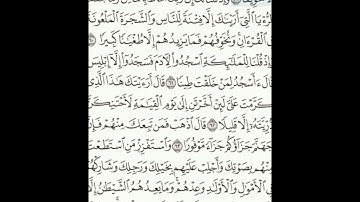 ٱلرُّءْيَا ٱلَّتِىٓ أَرَيْنَٰكَ إِلَّا فِتْنَةً لِّلنَّاسِ وَٱلشَّجَرَةَ ٱلْمَلْعُونَةَ
ٱلْقُرْءَانِ ۚ وَنُخَوِّفُهُمْ فَمَا يَزِيدُهُمْ إِلَّا طُغْيَٰنًا كَبِيرًا ٦٠
قُلْنَا لِلْمَلَٰٓئِكَةِ ٱسْجُدُوا۟ لِءَادَمَ فَسَجَدُوٓا۟ إِلَّآ إِبْلِيسَ
قَالَ ءَأَسْجُدُ لِمَنْ خَلَقْتَ طِينًا ٦١ قَالَ أَرَءَيْتَكَ هَٰذَا ٱلَّذِى
كَرَّمْتَ عَلَىَّ لَئِنْ أَخَّرْتَنِ إِلَىٰ يَوْمِ ٱلْقِيَٰمَةِ لَأَحْتَنِكَنَّ
ذُرِّيَّتَهُۥٓ إِلَّا قَلِيلًا ٦٢ قَالَ ٱذْهَبْ فَمَن تَبِعَكَ مِنْهُمْ فَإِنَّ
جَهَنَّمَ جَزَآؤُكُمْ جَزَآءً مَّوْفُورًا ٦٣ وَٱسْتَفْزِزْ مَنِ ٱسْتَطَعْتَ
مِنْهُم بِصَوْتِكَ وَأَجْلِبْ عَلَيْهِم بِخَيْلِكَ وَرَجِلِكَ وَشَارِكْهُمْ
فِى ٱلْأَمْوَٰلِ وَٱلْأَوْلَٰدِ وَعِدْهُمْ ۚ وَمَا يَعِدُهُمُ ٱلشَّيْطَٰنُ إِلَّا